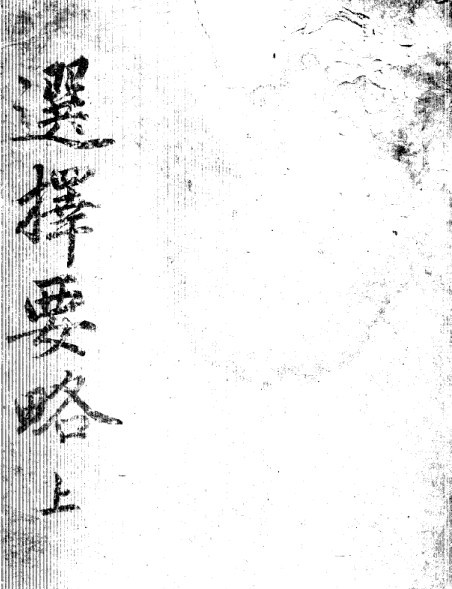 選擇要略上